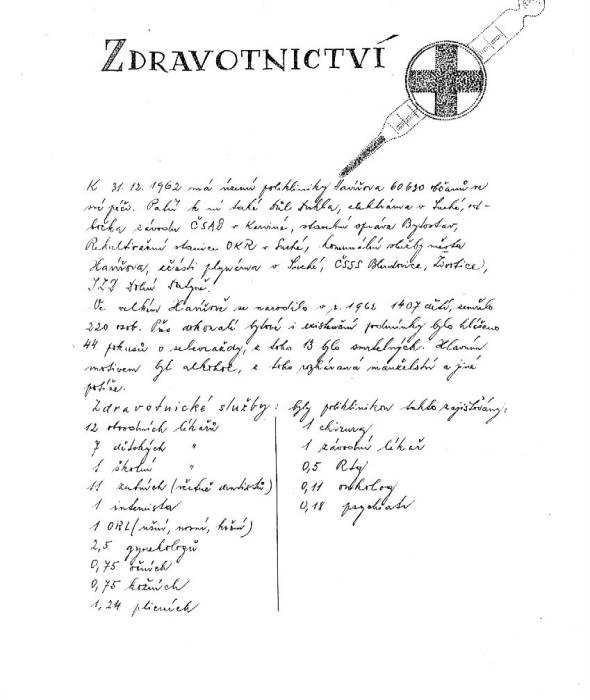 ZDRAVOTNICTVÍ
K 31.12.1962 má území polikliniky Havířova 60 630 občanů ve
své péči. Patří k ní také Důl Dukla, elektrárna v Suché, od-
bočka závodu ČSAD v Karviné, stavební správa Bytostav,
Rekultivační stanice OKR v Suché, komunální služby města
Havířova, zčásti plynárna v Suché, ČSSS Bludovice, Životice,
JZD Dolní Datyně.
Ve velkém Havířově se narodilo v r. 1962 1407 dětí, zemřelo
220 osob. Přes dokonalé bytové i existenční podmínky bylo hlášeno
44 pokusů o sebevraždy, z toho 13 bylo smrtelných. Hlavním
motivem byl alkohol, z toho rozháraná manželství a jiné
potíže.
Zdravotnické služby: byly poliklinikou takto zajišťovány:
12 obvodních lékařů
7 dětských "
1 školní "
11 zubních (včetně dentistů)
1 internista
1 ORL (ušní, nosní, krční)
2,5 gynekologů
0,75 očních
0,75 kožních
1,24 plicních
1 chirurg
1 závodní lékař
0,5 Rtg
0,11 onkolog
0,18 psychiatr